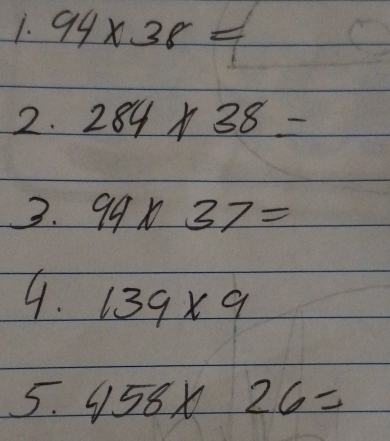 1. 94 x 38 =
2. 284 x 38 =
3. 94 x 37 =
4. 139 x 9
5. 458 x 26 =